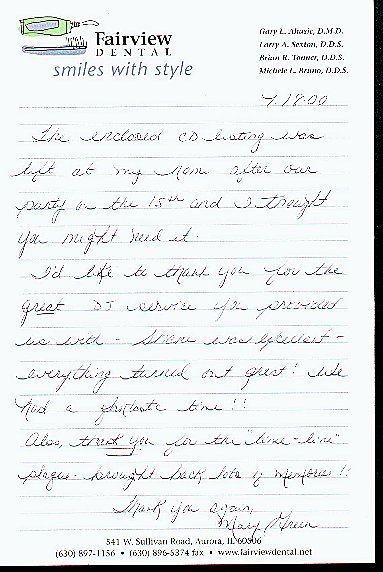 Fairview
DENTAL
smiles with style
Gary L. Alusic, D.M.D.
Larry A. Sexton, D.D.S.
Brian R. Tonner, D.D.S.
Michele L. Bruno, D.D.S.
7.18.00
The enclosed CD listing was
left at my home after our
party on the 15th and I thought
you might need it.
I'd like to thank you for the
great DJ service you provided
us with - was excellent -
everything turned out great! We
had a fantastic time!!
Also, thank you for the "time-line"
plaque - brought back lots of memories!!
Thank you again,
Mary Green
541 W. Sullivan Road, Aurora, IL 60506
(630) 897-1156 • (630) 896-5374 fax • www.fairviewdental.net